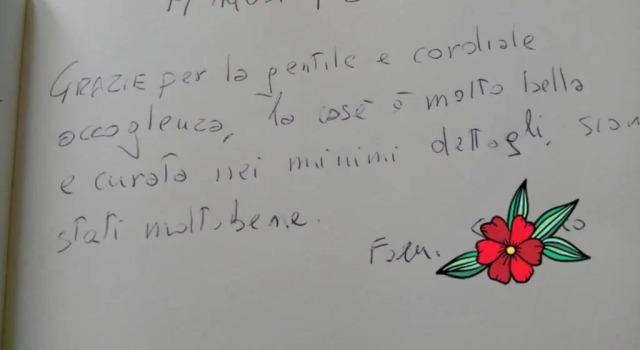 GRAZIE per la gentile e cordiale
accoglienza, la casa è molto bella
e curata nei minimi dettagli, siam
stati molto bene.
Fam.